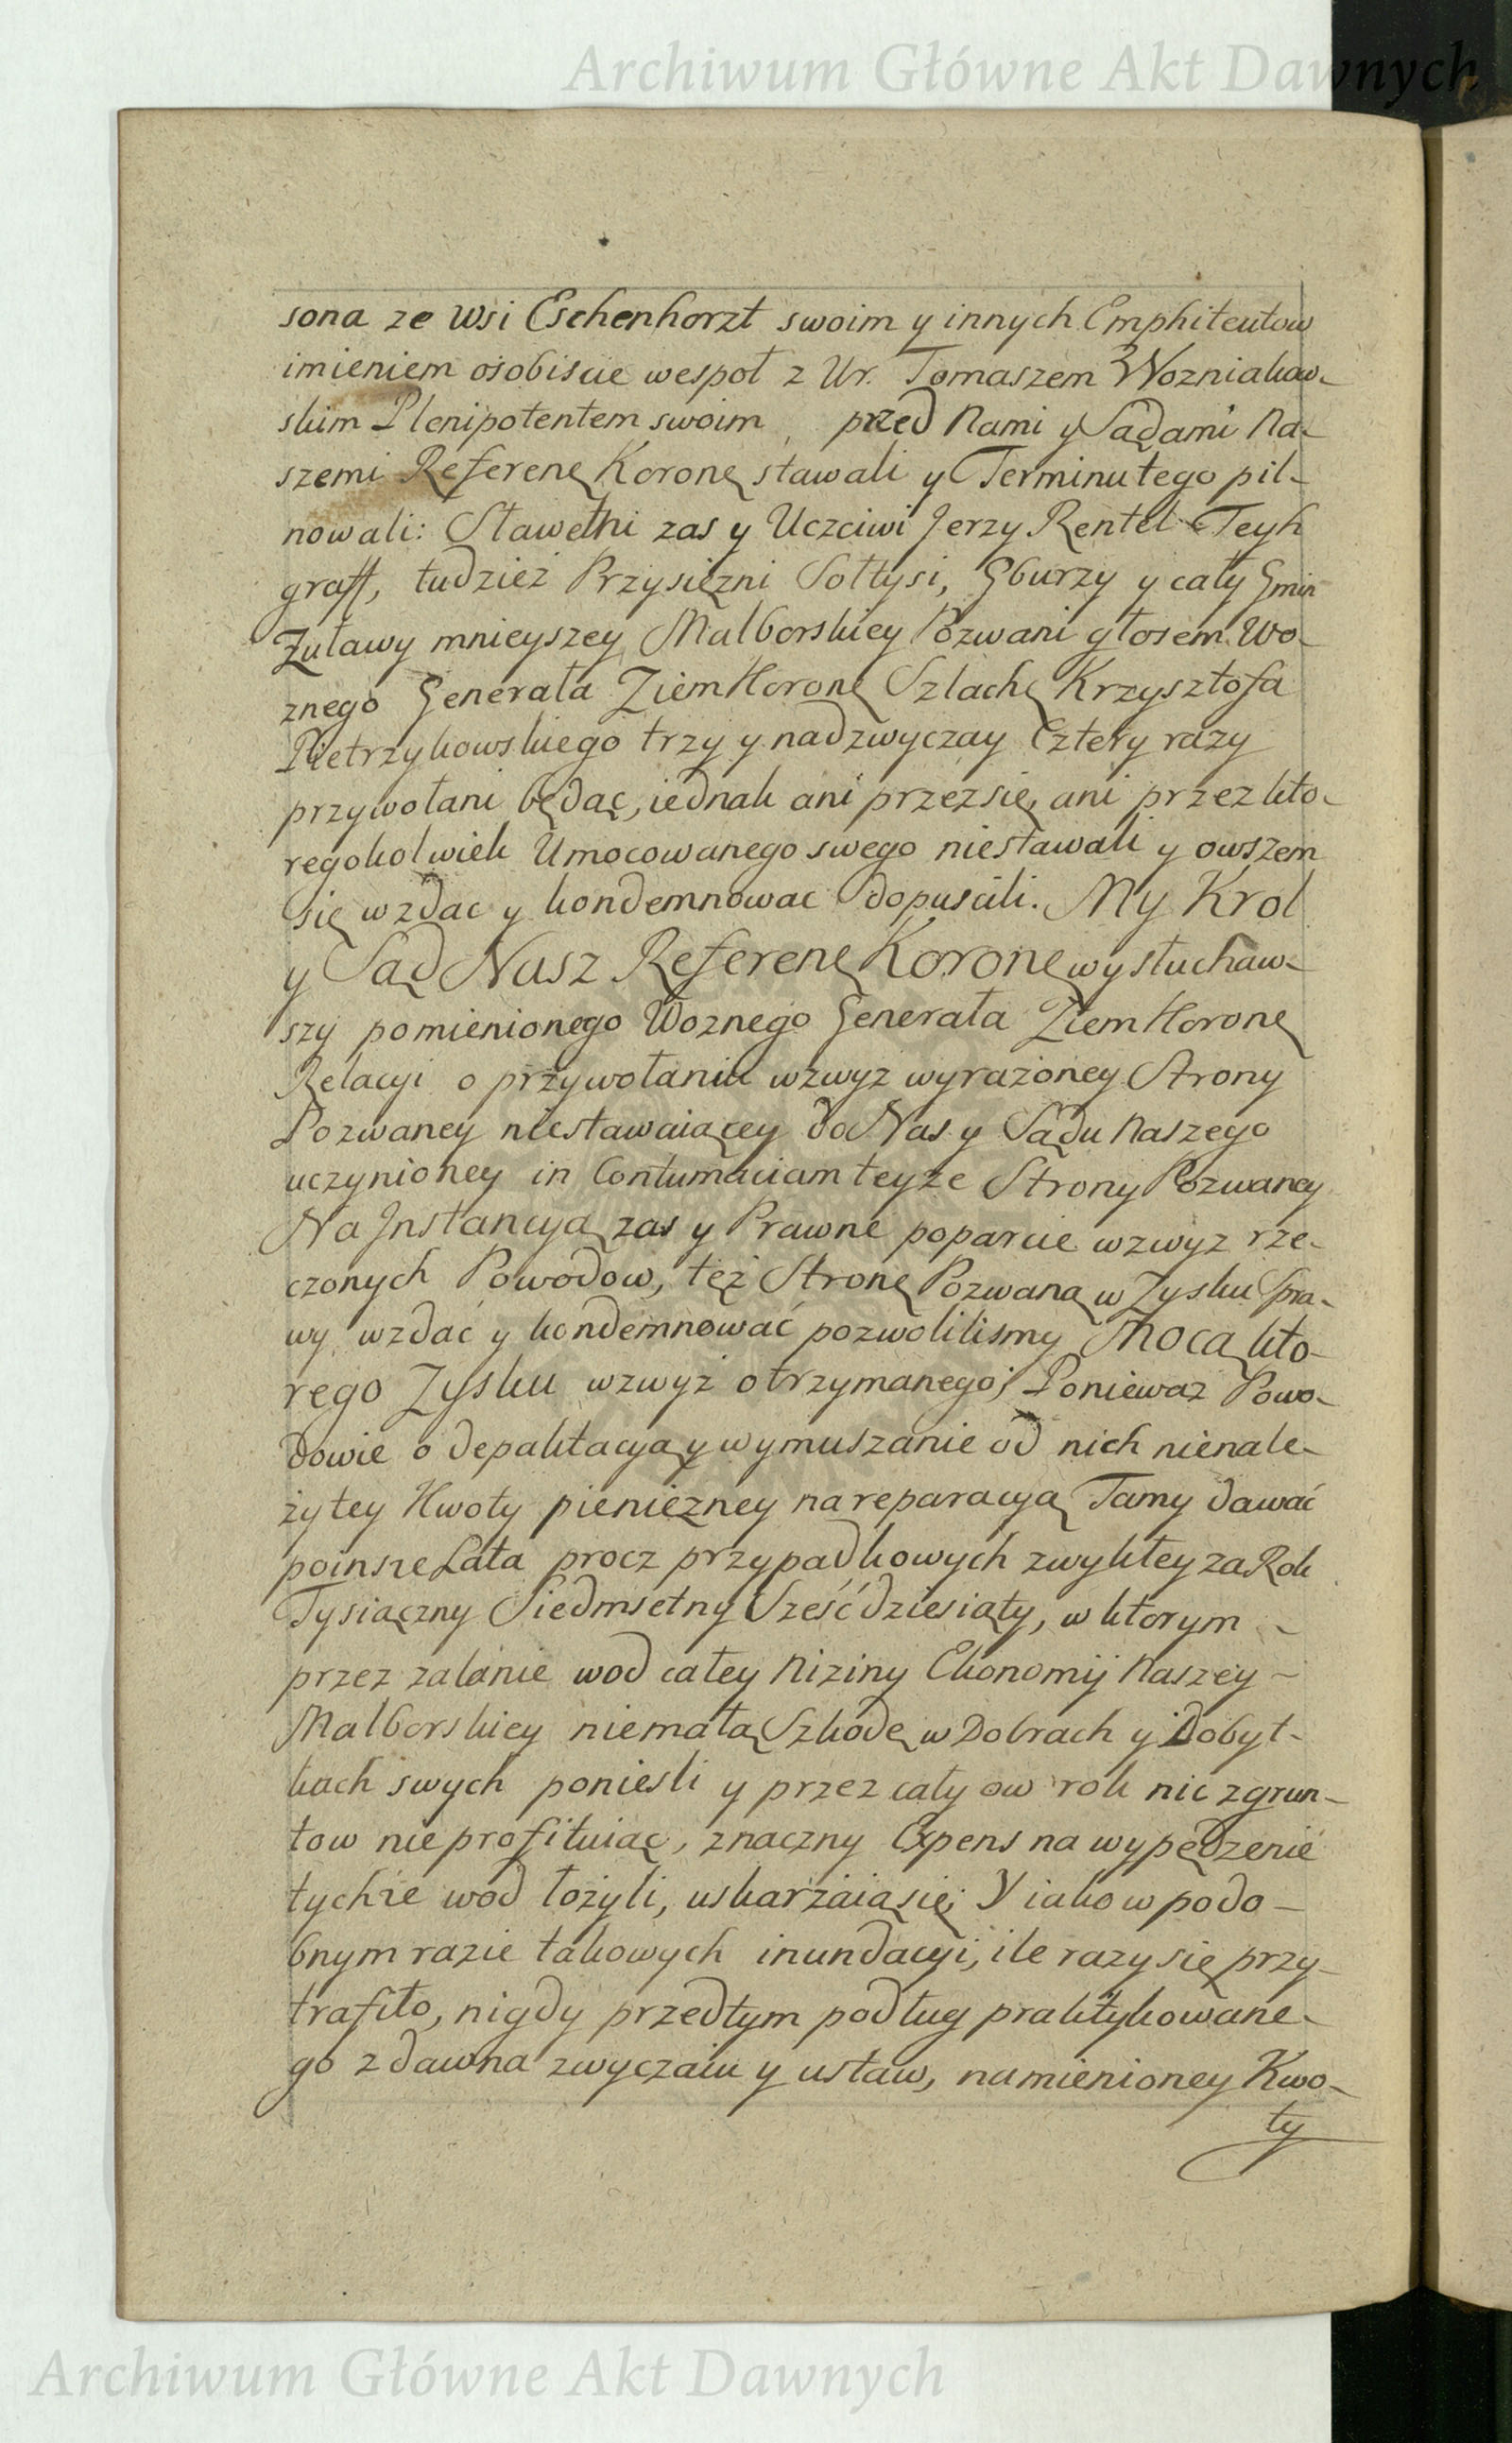 Archiwum Główne Akt Dawnych
sona ze Wsi Eschenhorzt swoim y innych Emphiteutow
imieniem osobiscie wespoł z Ur. Tomaszem Wozniakow-
skim Plenipotentem swoim, przed Nami y Sądami Na-
szemi Referenę Koronę stawali y Terminu tego pil-
nowali: Sławetni zas y Uczciwi Jerzy Rentel Teyh
graff, tudziez Przysięzni Sołtysi, Gburzy y cały Gmin
Zuławy mnieyszey Malborskiey Pozwani głosem Wo-
znego Generała Ziem Koronę Szlachę Krzysztofa
Pietrzykowskiego trzy y nadzwyczay Cztery razy
przywołani będąc, iednak ani przez się, ani przez kto-
regokolwiek Umocowanego swego niestawali y owszem
się wzdac y kondemnowac dopuscili. My Krol
y Sąd Nasz Referenę Koronę wysłuchaw-
szy pomienionego Woznego Generała Ziem Koronę
Relacyi o przywołaniu wzwyz wyrażoney Strony
Pozwaney niestawaiącey do Nas y Sądu Naszego
uczynioney in Contumaciam teyże Strony Pozwaney
Na Instancyą zas y Prawne poparcie wzwyz rze-
czonych Powodow, też Stronę Pozwaną w Zysku Spra-
wy wzdać y kondemnować pozwolilismy Mocą kto-
rego Zysku wzwyż otrzymanego; Poniewaz Powo-
dowie o depaktacyą y wymuszanie od nich nienale-
żytey Kwoty pieniężney na reparacyą Tamy dawać
poinsze Lata procz przypadkowych zwykłey za Rok
Tysiączny Siedmsetny Sześćdziesiąty, w ktorym -
przez zalanie wod całey Niziny Ekonomij Naszey -
Malborskiey niemałą Szkodę w Dobrach y Dobyt-
kach swych poniesli y przez cały ow rok nic z grun-
tow nie profituiąc, znaczny Expens na wypędzenie
tychże wod łożyli, uskarżaią się; Y iako w podo-
bnym razie takowych inundacyi, ile razy się przy-
trafiło, nigdy przedtym podług praktykowane-
go zdawna zwyczaiu y ustaw, namienioney Kwo-
ty
Archiwum Główne Akt Dawnych